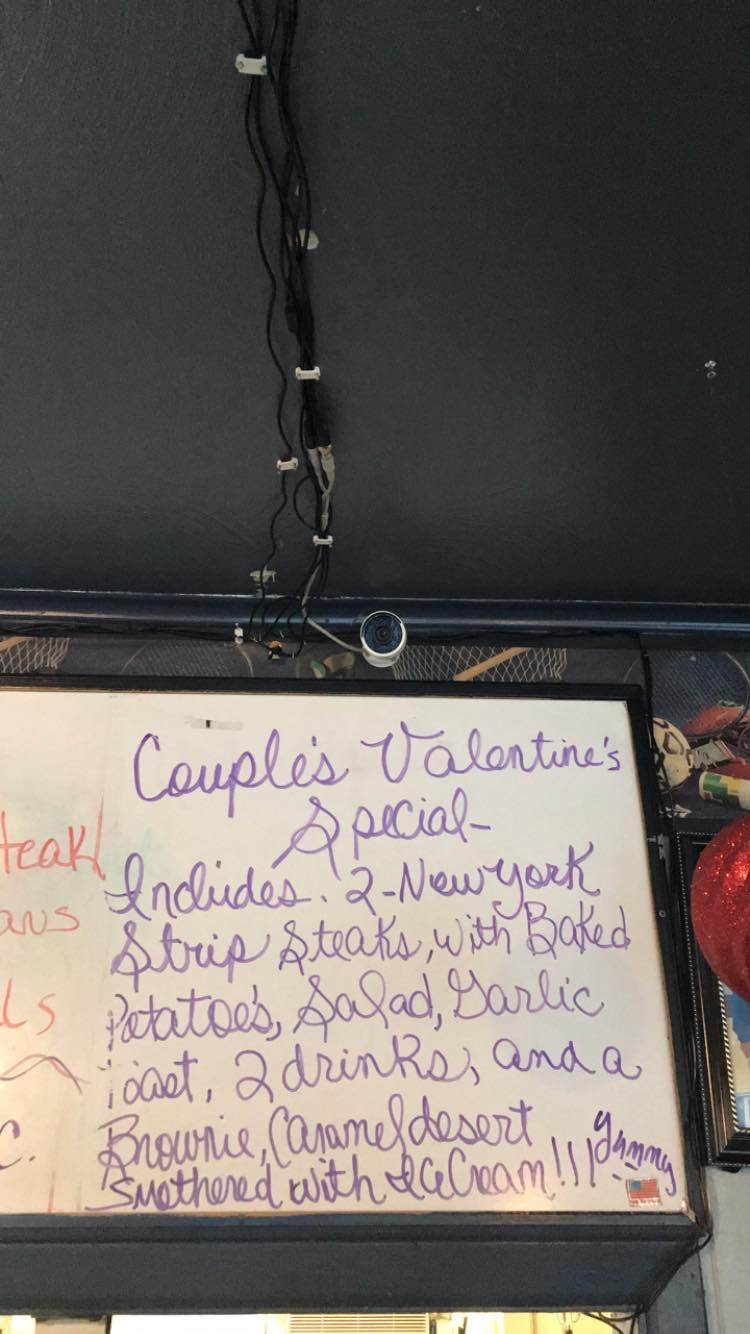 Couple's Valentine's
Special-
Includes. 2-New York
Strip Steaks, with Baked
Potatoe's, Salad, Garlic
Toast, 2 drinks, and a
Brownie, Caramel desert
Smothered with Ice Cream!!! Yummy
teak!
ans
ls
c.